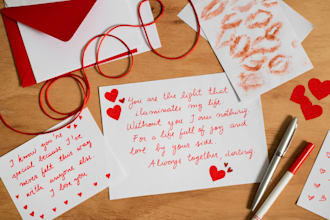 You are the light that
iluminates my life.
Without you I am nothing.
For a life full of joy and
love by your side.
Always together, darling
I know you're
special because I've
never felt this way
with anyone else.
I love you